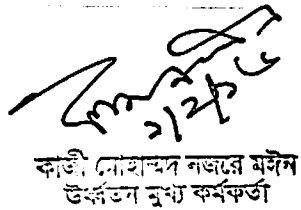 ২/২/১৬
কাজী মোহাম্মদ নজরে মঈন
উর্ধ্বতন মুখ্য কর্মকর্তা